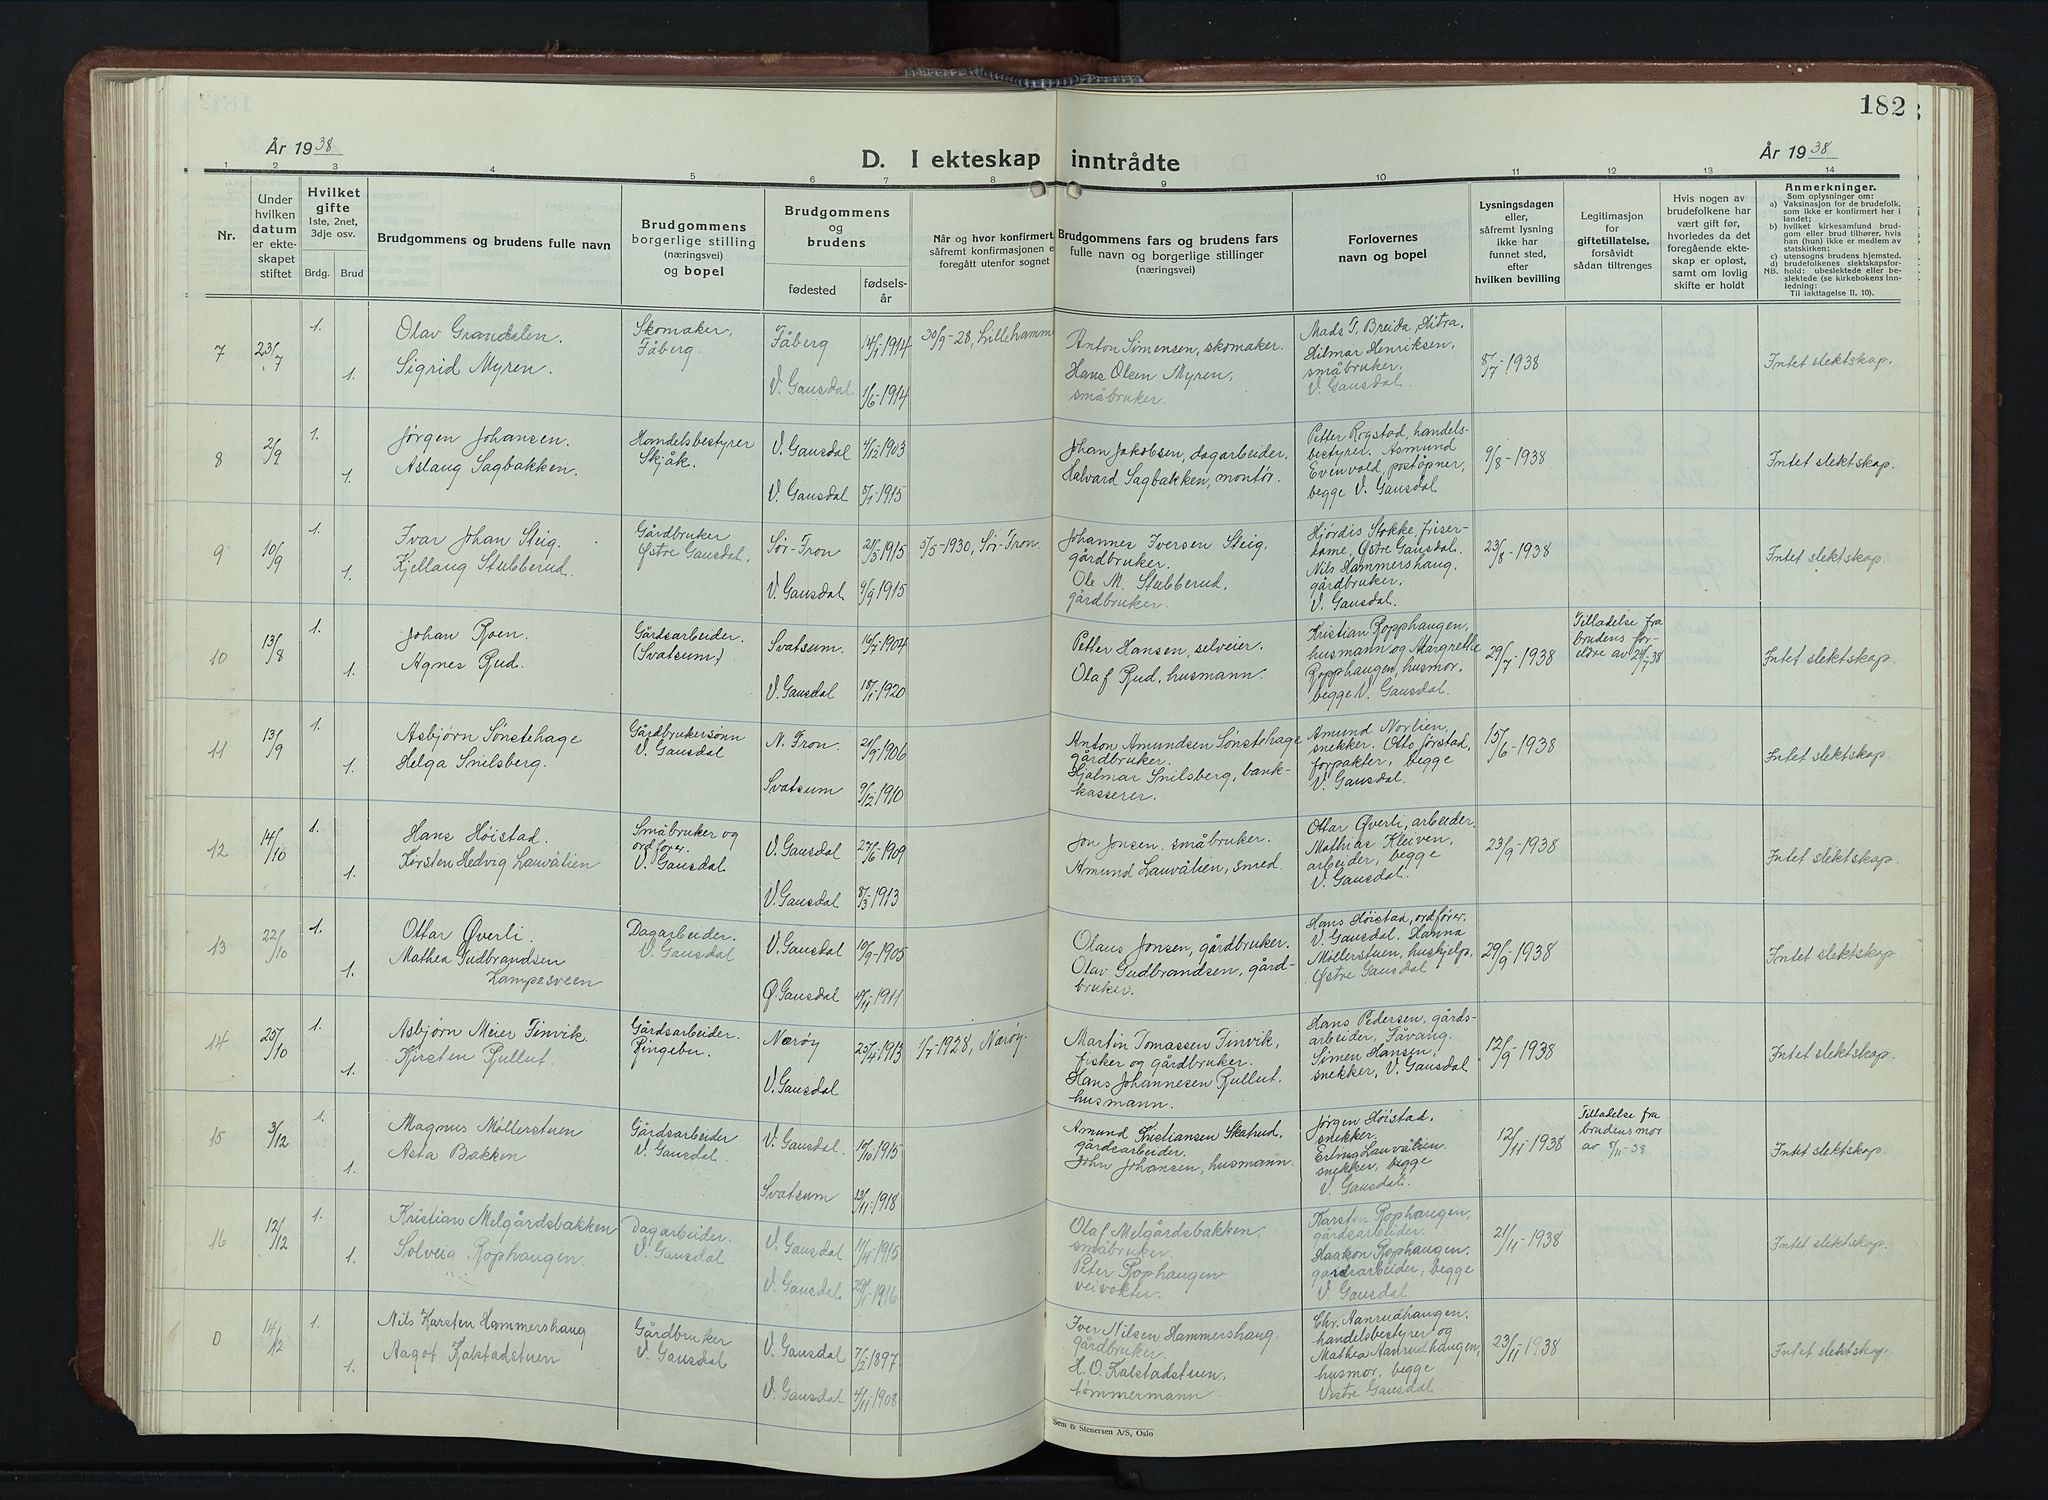 182
År 1938
D. I ekteskap inntrådte
År 1938
1 2 3 4 5 6 7 8 9 10 11 12 13 14
Nr.
Under
hvilken
datum
er ekte-
skapet
stiftet
Hvilket
gifte
1ste, 2net,
3dje osv.
Brdg. Brud
Brudgommens og brudens fulle navn
Brudgommens
borgerlige stilling
(næringsvei)
og bopel
Brudgommens
og
brudens
fødested
fødsels-
år
Når og hvor konfirmert
såfremt konfirmasjonen e
foregått utenfor sognet
Brudgommens fars og brudens fars
fulle navn og borgerlige stillinger
(næringsvei)
Forlovernes
navn og bopel
Lysningsdagen
eller,
såfremt lysning
ikke har
funnet sted,
efter
hvilken bevilling
Legitimasjon
for
giftetillatelse,
forsåvidt
sådan tiltrenges
Hvis nogen av
brudefolkene har
vært gift før,
hvorledes da det
foregående ekte-
skap er opløst,
samt om lovlig
skifte er holdt
Anmerkninger.
Som oplysninger om:
a) Vaksinasjon for de brudefolk,
som ikke er konfirmert her i
landet;
b) hvilket kirkesamfund brud-
gom eller brud tilhører, hvis
han (hun) ikke er medlem av
statskirken;
c) utensogns brudens hjemsted.
d) brudefolkenes slektskapsfor-
NB. hold: ubeslektede eller be-
slektede (se kirkebokens Inn-
ledning:
Til iakttagelse 11, 10).
7 23/7 1. Olav Grandalen. Skomaker, Fåberg. Fåberg 14/1-1914 30/9-28, Lillehamm
1. Sigrid Myren. V. Gausdal 1/6-1914
Anton Simensen, skomaker.
Hans Olsen Myren,
småbruker.
Mads T. Breida, Hitra.
Hilmar Henriksen,
småbruker.
V. Gausdal.
8/7-1938
Intet slektskap.
8 2/9 1. Jørgen Johansen. Handelsbestyrer Skjåk. V. Gausdal 4/12-1903
1. Aslaug Sagbakken. V. Gausdal 5/1-1915
Johan Jakobsen, dagarbeider.
Halvard Sagbakken, montør.
Petter Rogstad, handels-
bestyrer. Asmund
Evenvold, poståpner,
begge V. Gausdal
9/8-1938
Intet slektskap.
9 10/9 1. Ivar Johan Steig. Gårdbruker Østre Gausdal. Sør-Fron 21/3-1915 5/5-1930, Sør-Fron.
1. Kjellaug Stubberud. V. Gausdal 9/9-1915
Johannes Iversen Steig,
gårdbruker.
Ole M. Stubberud,
gårdbruker.
Hjördis Stokke, friser-
dame, Østre Gausdal.
Nils Hammershaug,
gårdbruker.
V. Gausdal.
23/8-1938
Intet slektskap.
10 13/8 1. Johan Roen. Gårdsarbeider. (Svatsum.) Svatsum. 16/7-1904
1. Agnes Rud. V. Gausdal 18/1-1920
Petter Hansen, selveier.
Olaf Rud, husmann.
Kristian Ropphaugen,
husmann og Margrethe
Ropphaugen, husmor,
begge V. Gausdal.
29/7-1938
Tilladelse fra
brudens for-
eldre av 24/7-38
Intet slektskap.
11 13/9 1. Asbjørn Sønstehage Gårdbrukersønn V. Gausdal N. Fron. 21/9-1906
1. Helga Snilsberg. Svatsum 9/12-1910
Anton Amundsen Sønstehage
gårdbruker.
Hjalmar Snilsberg, bank-
kasserer.
Amund Norlien,
snekker. Otto Jørstad,
forpakter, begge
V. Gausdal.
15/6-1938
Intet slektskap.
12 14/10 1. Hans Høistad. Småbruker og ordfører. V. Gausdal V. Gausdal 27/6-1909
1. Kirsten Hedvig Lauvålien V. Gausdal 8/3-1913
Jon Jonsen. småbruker.
Amund Lauvålien, smed.
Ottar Øverli, arbeider.
Mathias Kleiven,
arbeider, begge
V. Gausdal.
23/9-1938
Intet slektskap.
13 22/10 1. Ottar Øverli. Dagarbeider. V. Gausdal V. Gausdal 10/9-1905
1. Mathea Gudbrandsen
Kampesveen Ø. Gausdal 4/11-1911
Olaus Jonsen, gårdbruker.
Olav Gudbrandsen, gård-
bruker.
Hans Høistad, ordfører.
V. Gausdal. Hanna
Møllerstuen, hushjelp,
Østre Gausdal
29/9-1938
Intet slektskap
14 25/10 1. Asbjørn Meier Finvik. Gårdsarbeider. Ringebu. Nærøy 25/4-1913 1/7-1928, Nærøy.
1. Kirsten Rullut. V. Gausdal
Martin Tomassen Finvik,
fisker og gårdbruker.
Hans Johannesen Rullut,
husmann.
Hans Pedersen, gårds-
arbeider, Fåvang.
Simen Hansen,
snekker, V. Gausdal
12/9-1938
Intet slektskap.
15 3/12 1. Magnus Møllerstuen Gårdsarbeider V. Gausdal. V. Gausdal. 10/10-1915
1. Asta Bakken Svatsum 13/11-1918
Amund Kristiansen Skatrud,
gårdsarbeider.
John Johansen, husmann.
Jørgen Høistad,
snekker.
Erling Lauvålien.
snekker, begge
V. Gausdal.
12/11-1938
Tilladelse fra
brudens mor
av 5/11-38
Intet slektskap.
16 12/12 1. Kristian Melgårdsbakken Dagarbeider. V. Gausdal V. Gausdal 11/4-1915
1. Solveig Rophaugen. V. Gausdal 29/1-1916
Olaf Melgårdsbakken,
småbruker.
Peter Rophaugen
veivokter.
Karsten Rophaugen,
gårdsarbeider.
Haakon Rophaugen,
gårdsarbeider, begge
V. Gausdal
21/11-1938
Intet slektskap.
0 14/12 1. Nils Karsten Hammershaug Gårdbruker V. Gausdal V. Gausdal 7/2-1897
1. Aagot Kalstadstuen V. Gausdal 4/11-1908
Iver Nilsen Hammershaug,
gårdbruker.
H. O. Kalstadstuen,
tømmermann.
Chr. Aanrudhaugen,
handelsbestyrer og
Mathea Aanrudhaugen,
husmor, begge
Vestre Gausdal
23/11-1938
Intet slektskap
Sem & Stenersen A/S, Oslo